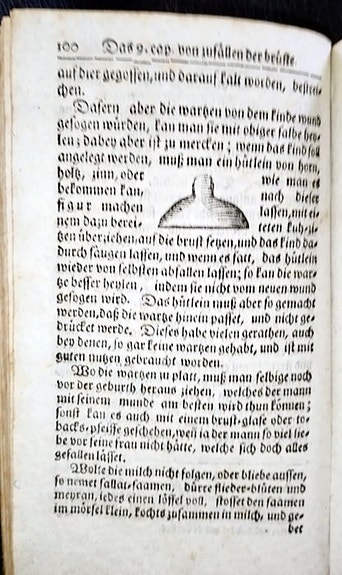 100 Das 9. cap. von zufällen der brüste.
auf dier gegossen, und darauf kalt worden, bestrei-
chen.
Dafern aber die wartzen von dem kinde wund
gesogen würden, kan man sie mit obiger salbe hey-
len; dabey aber ist zu mercken; wenn das kind soll
angelegt werden, muß man ein hütlein von horn,
holtz, zinn, oder wie man es
bekommen kan, nach dieser
figur machen lassen, mit ei-
nem dazu berei- teten kuh-zi-
tzen überziehen, auf die brust setzen, und das kind da-
durch säugen lassen, und wenn es satt, das hütlein
wieder von selbsten abfallen lassen; so kan die war-
tze besser heylen, indem sie nicht vom neuen wund
gesogen wird. Das hütlein muß aber so gemacht
werden, daß die wartze hinein passet, und nicht ge-
drücket werde. Dieses habe vielen gerathen, auch
bey denen, so gar keine wartzen gehabt, und ist mit
guten nutzen gebraucht worden.
Wo die wartzen zu platt, muß man selbige noch
vor der geburth heraus ziehen, welches der mann
mit seinem munde am besten wird thun können;
sonst kan es auch mit einem brust-glase oder to-
backs-pfeiffe geschehen, weñ ja der mann so viel lie-
be vor seine frau nicht hätte, welche sich doch alles
gefallen lässet.
Wolte die milch nicht folgen, oder bliebe aussen,
so nemet sallat-saamen, dürre flieder-blüten und
meyran, iedes einen löffel voll, stosset den saamen
im mörsel klein, kochts zusammen in milch, und ge-
bet